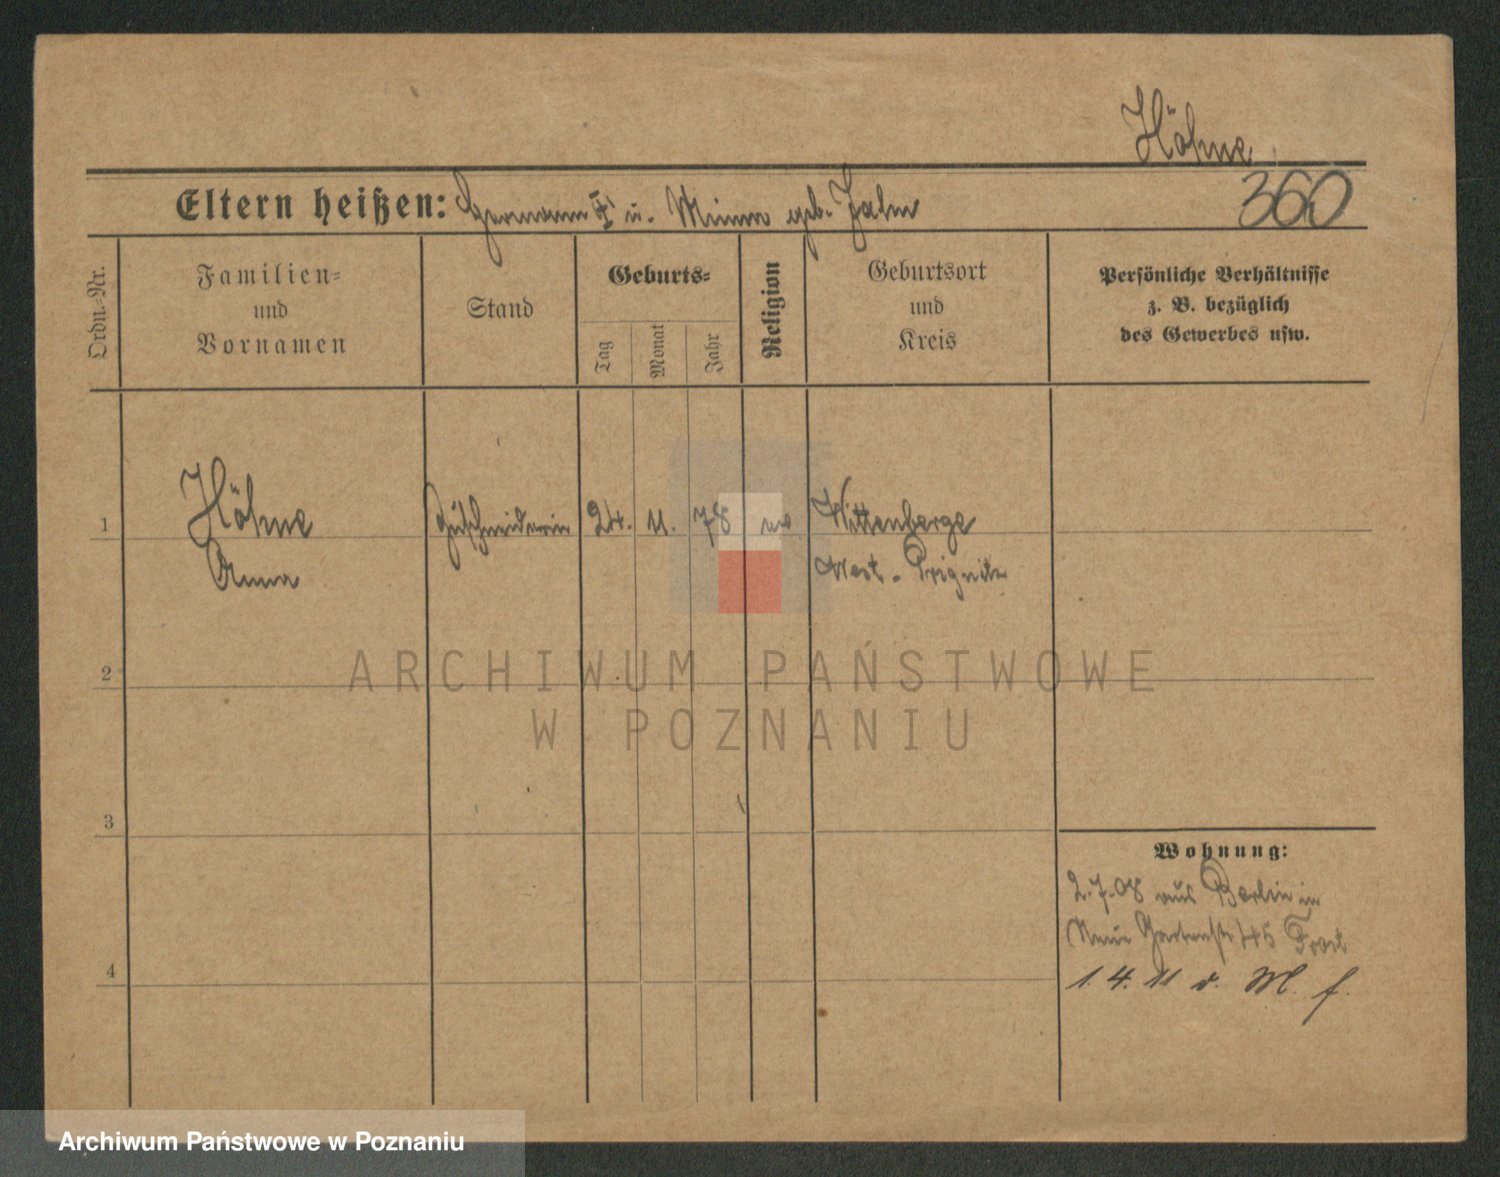 Höhne
Eltern heißen: Hermann † u. Minna geb. Jahn
360
Ordn.-Nr.
Familien-
und
Vornamen
Stand
Geburts-
Tag
Monat
Jahr
Religion
Geburtsort
und
Kreis
Persönliche Verhältnisse
z. B. bezüglich
des Gewerbes usw.
1
Höhne
Anna
Zuschneiderin
24. 11. 78
ev
Wittenberge
West-Prignitz
2
3
4
Wohnung:
2.7.08 aus Berlin in
Neue Gartenstr 45
1. 4. 11 v. M. f.
ARCHIWUM PAŃSTWOWE
W POZNANIU
Archiwum Państwowe w Poznaniu